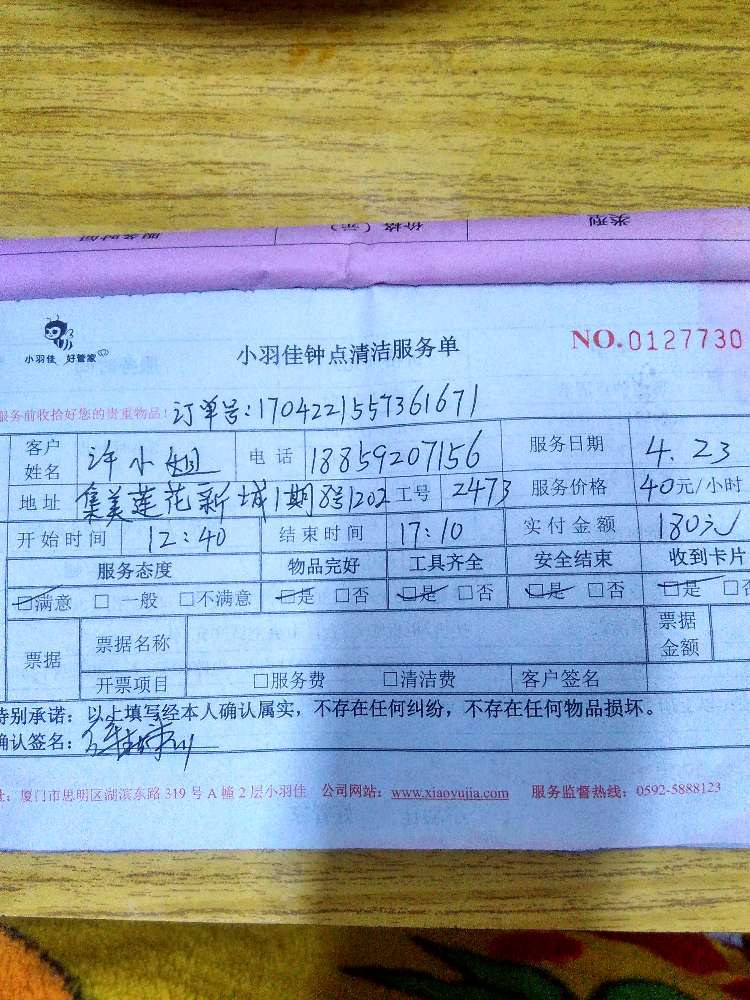 类型 价格（元） 服务时间
小羽佳 好管家
小羽佳钟点清洁服务单
NO.0127730
服务前收拾好您的贵重物品！订单号:1704221557361671
客户姓名 许小姐 电话 18859207156 服务日期 4.23
地址 集美莲花新城1期8号1202 工号 2473 服务价格 40元/小时
开始时间 12:40 结束时间 17:10 实付金额 180元
服务态度 物品完好 工具齐全 安全结束 收到卡片
☑满意 □一般 □不满意 ☑是 □否 ☑是 □否 ☑是 □否 ☑是 □否
票据 票据名称 票据金额
开票项目 □服务费 □清洁费 客户签名
特别承诺：以上填写经本人确认属实，不存在任何纠纷，不存在任何物品损坏。
确认签名：
址：厦门市思明区湖滨东路319号A幢2层小羽佳 公司网站：www.xiaoyujia.com 服务监督热线：0592-5888123